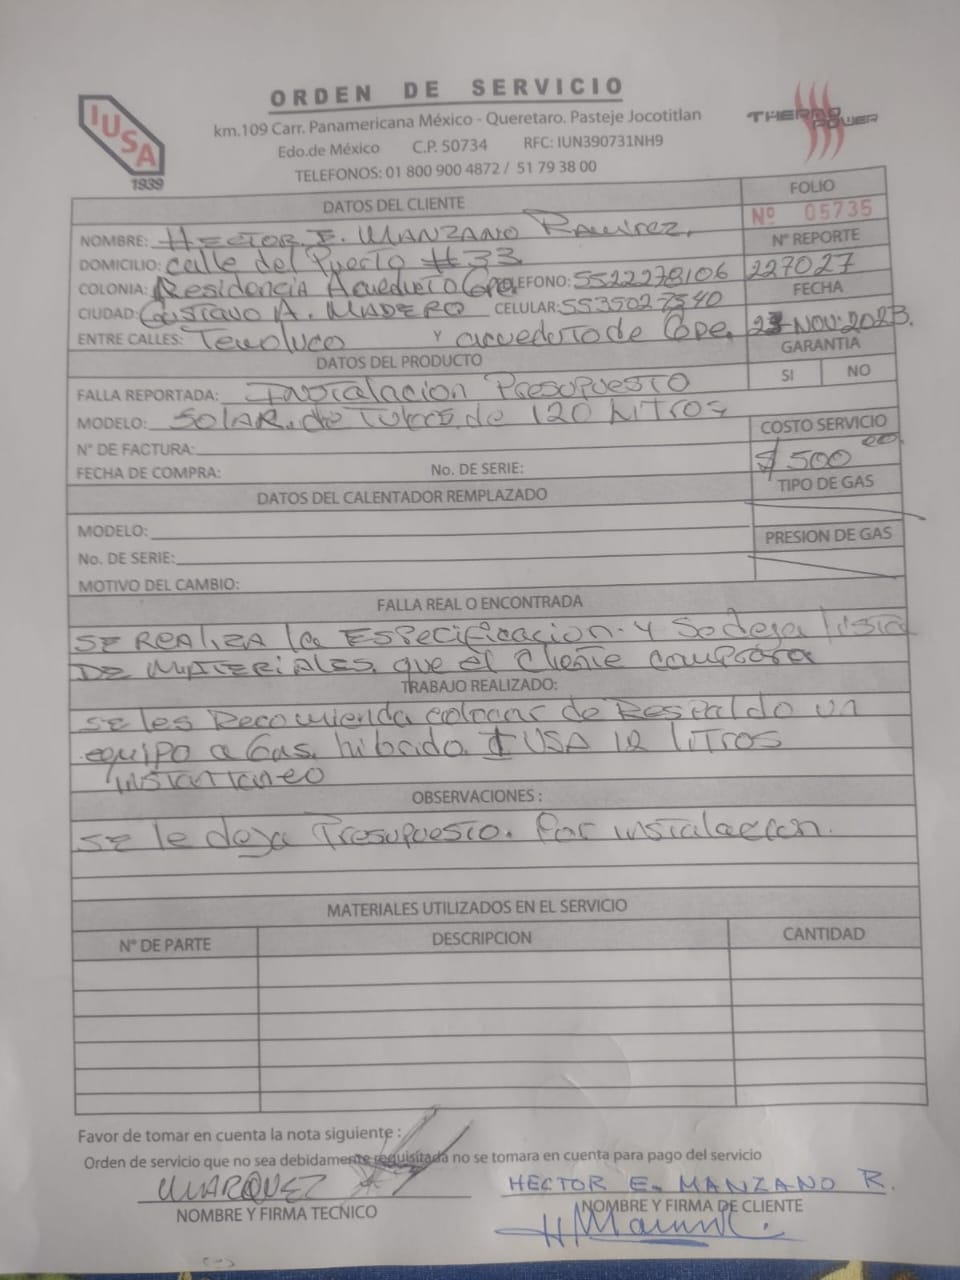 ORDEN DE SERVICIO
IUSA
1939
km.109 Carr. Panamericana México - Queretaro. Pasteje Jocotitlan
THERMO POWER
Edo.de México C.P. 50734 RFC: IUN390731NH9
TELEFONOS: 01 800 900 4872 / 51 79 38 00
DATOS DEL CLIENTE
FOLIO
Nº 05735
NOMBRE: HECTOR. E. MANZANO Ramirez.
Nº REPORTE
DOMICILIO: calle del Puerto #33
227027
COLONIA: Residencia Acueducto Gpe. TELEFONO: 5522278106
FECHA
CIUDAD: Gustavo A. MADERO CELULAR: 5535027540
ENTRE CALLES: Temoluco Y acueducto de Gpe. 23-NOV-2023.
DATOS DEL PRODUCTO
GARANTIA
SI NO
FALLA REPORTADA: Instalacion Presupuesto
MODELO: SOLAR. de Tubos. de 120 LiTROS
COSTO SERVICIO
Nº DE FACTURA:
$ 500 00.
FECHA DE COMPRA: No. DE SERIE:
TIPO DE GAS
DATOS DEL CALENTADOR REMPLAZADO
MODELO:
PRESION DE GAS
No. DE SERIE:
MOTIVO DEL CAMBIO:
FALLA REAL O ENCONTRADA
SE REALIZA la Especificacion. Y Se deja lista
DE MATERIALES. que el Cliente comprara
TRABAJO REALIZADO:
se les Recomienda colocar de Respaldo un
equipo a Gas. hibrido. IUSA 12 LITROS
INSTANTANEO
OBSERVACIONES :
se le deja Presupuesto. Por instalacion.
MATERIALES UTILIZADOS EN EL SERVICIO
Nº DE PARTE DESCRIPCION CANTIDAD
Favor de tomar en cuenta la nota siguiente :
Orden de servicio que no sea debidamente requisitada no se tomara en cuenta para pago del servicio
MARQUEZ
HECTOR E. MANZANO R.
NOMBRE Y FIRMA TECNICO
NOMBRE Y FIRMA DE CLIENTE